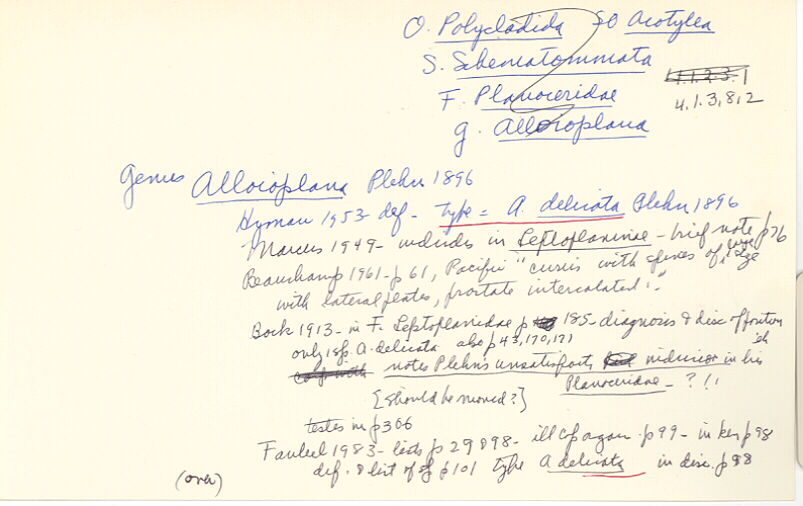 O. Polycladida SO Acotylea
S. Schematommata
4.1.2.3.1
F. Planoceridae
4.1.3.8.2
g. Alloioplana
Genus Alloioplana Plehn 1896
Hyman 1953 def - type = A. delicata Plehn 1896
Marcus 1949 - includes in Leptoplaninae - brief note p 76
Beauchamp 1961 - p 61, Pacific "cirrus with spines of size
with lateral plates, prostate intercalated."
Bock 1913 - in F. Leptoplanidae p 185 - diagnosis & disc of position
only 1 sp. A. delicata also p 43, 170, 171
notes Plehn's in his
Planoceridae - ? !!
[should be moved?]
testes in p 306
Faubel 1983 - lists p 29 & 98 - ill cop organ. p 99 - in key p 98
def. & list of sp p 101 type A delicata in disc. p 98
(over)